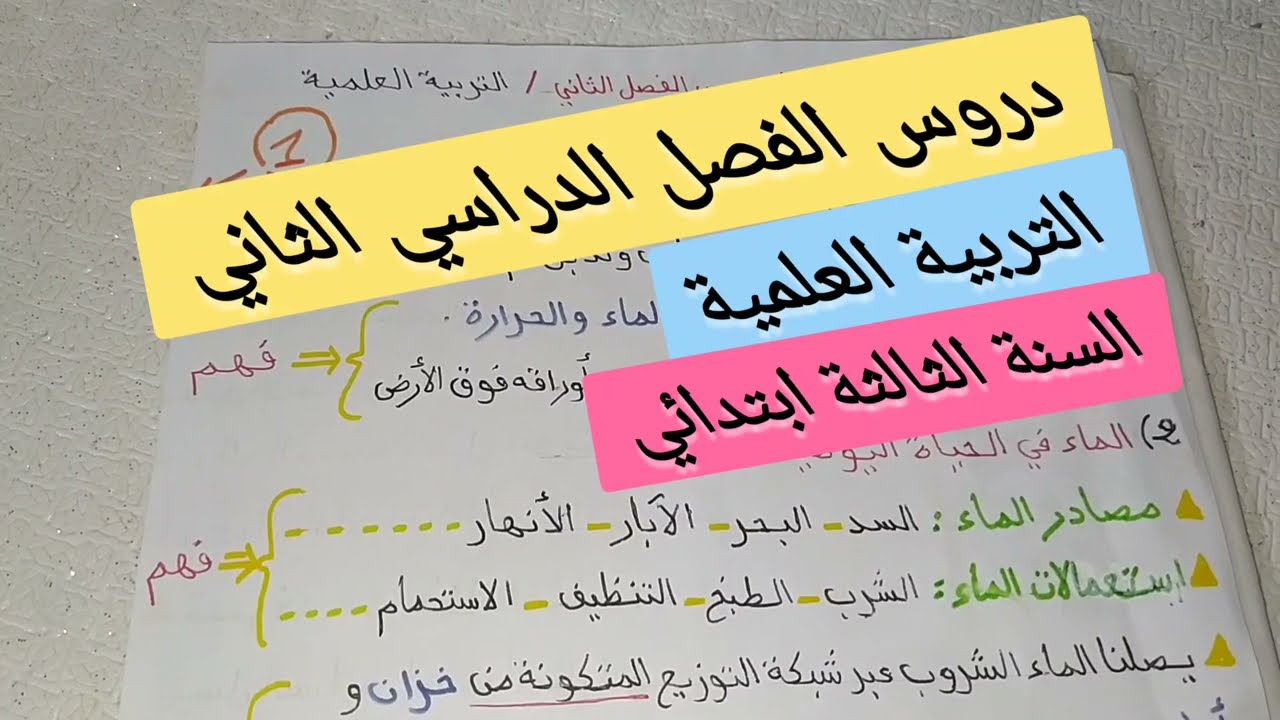 الفصل الثاني / التربية العلمية
1
دروس الفصل الدراسي الثاني
التربية العلمية
السنة الثالثة ابتدائي
الماء والحرارة .
فهم
أوراقه فوق الأرض
2) الماء في الحياة
مصادر الماء : السد - البحر - الآبار - الأنهار ------
فهم
إستعمالات الماء : الشرب - الطبخ - التنظيف - الاستحمام ----
يصلنا الماء الشروب عبر شبكة التوزيع المتكونة من خزان و